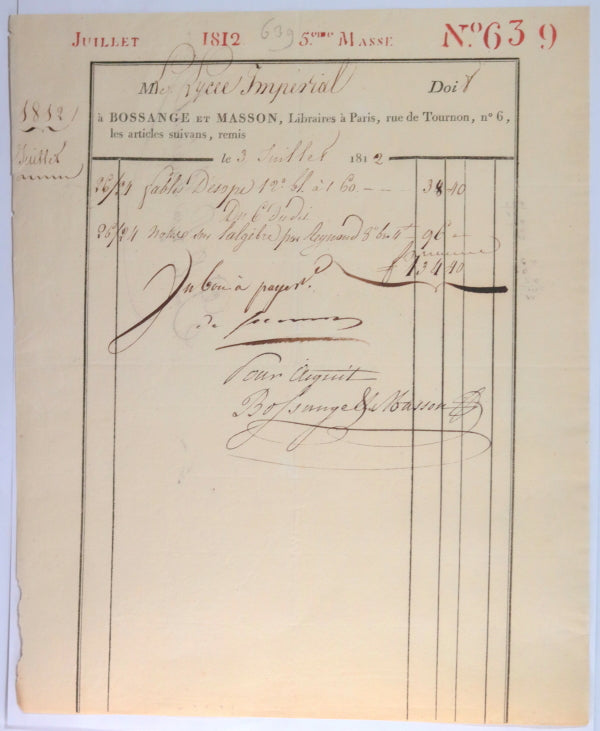 JUILLET 1812 639 5.eme MASSE N.o 639
M Lycée Impérial Doit
1812
à BOSSANGE ET MASSON, Libraires à Paris, rue de Tournon, n° 6,
les articles suivans, remis
Juillet
le 3 Juillet 1812
26/24 fables D'esope 12° à 1 60 38 40
26/24 notes sur l'algèbre par Reynaud 8° 96
134 40
Un bon à payer
de
Pour Acquit
Bossange & Masson